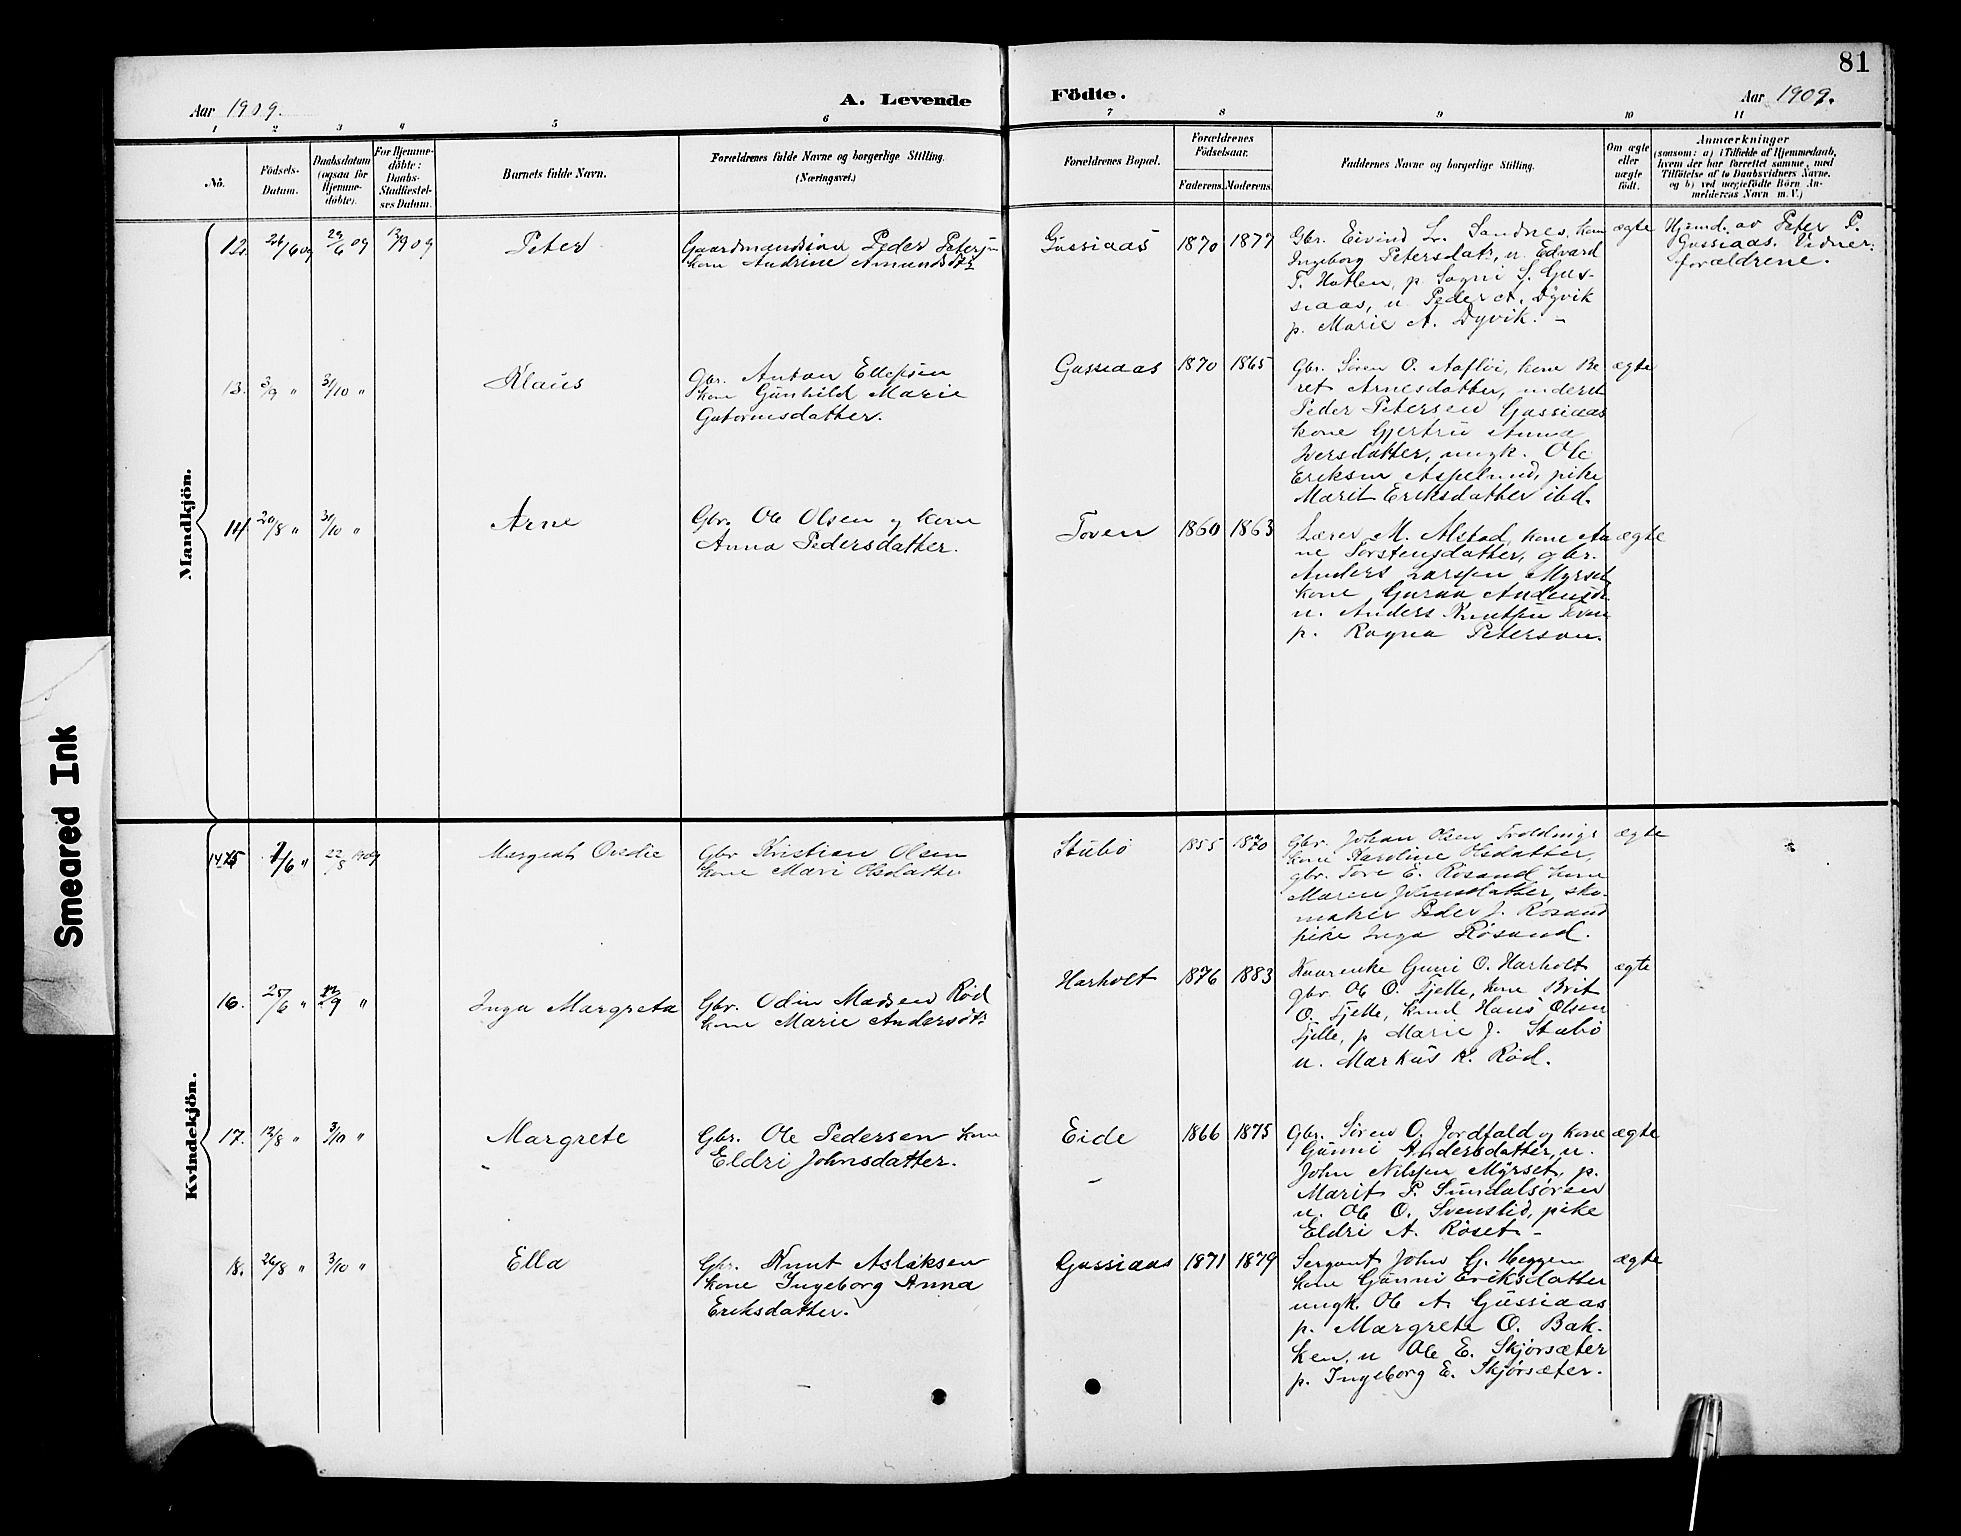 81
Aar 1909.
A. Levende
Födte.
Aar 1909.
1 2 3 4 5 6 7 8 9 10 11
No.
Födsels-
Datum.
Daabsdatum
(ogsaa for
Hjemme-
döbte).
For Hjemme-
döbte:
Daabs-
Stadfæstel-
ses Datum.
Barnets fulde Navn.
Forældrenes fulde Navne og borgerlige Stilling.
(Næringsvei.)
Forældrenes Bopæl.
Forældrenes
Födselsaar.
Faderens. Moderens.
Faddernes Navne og borgerlige Stilling.
Om ægte
eller
uægte
født.
Anmærkninger
(saasom: a) i Tilfælde af Hjemmedaab,
hvem der har forrettet samme, med
Tilföielse af to Daabsvidners Navne,
og b) ved uægtefödte Börn An-
melderens Navn m. V.)
Mandkjön.
12. 26/6 09 29/6 09 09
Peter
Gaardmandssøn Peder Petersen
kone Andrine Amundsdtr
Gussiaas 1870 1877
Gbr. Eivind Sandnes, kone
Ingeborg Petersdatr, u. Edvard
T. Hatlen, p. Sogni S. Gus-
siaas, u. Peder A. Dyvik
p. Marie A. Dyvik. -
ægte
Hjemd. av Peter P.
Gussiaas. Vidner:
forældrene.
13. 3/9 " 3/10 "
Klaus
Gbr. Anton Ellefsen
kone Gunhild Marie
Gutormsdatter.
Gussiaas 1870 1865
Gbr. Søren O. Aafløi, kone Be
ret Arnesdatter,
Peder Petersen Gussiaas
kone Gjertru Anna
Iversdatter, ungk. Ole
Eriksen Aspelund, pike
Marit Eriksdatter ibd.
ægte
14. 20/8 " 3/10 "
Arne
Gbr. Ole Olsen og kone
Anna Pedersdatter.
Toven 1860 1863
Lærer M. Alstad, kone An
ne Torstensdatter, gbr.
Anders Larssen Myrset
kone Gurua
u. Anders Knutsen Toven
p. Ragna Peterson.
ægte
Kvindekjön.
15 1/6 " 22/8 1909
Margrat
Gbr Kristian Olsen
kone Mari Olsdatter
Stubø 1855 1870
Gbr. Johan Olsen
kone Karoline Olsdatter,
gbr. Tore E. Røsand kone
Maren Johnsdatter, sko-
maker Peder J. Røsand
pike Inga Røsand.
ægte
16. 25/6 " 12/9 "
Inga Margreta
Gbr. Odin Madsen Rød
kone Marie Andersdtr
Harholt 1876 1883
Guni O. Harholt
gbr. Ole O. Tjelle, kone Brit
O. Tjelle, Hans Olsen
Tjelle, p Marie J. Stubø
u. Markus K. Rød.
ægte
17. 12/8 " 3/10 "
Margrete
Gbr. Ole Pedersen kone
Eldri Johnsdatter.
Eide 1866 1875
Gbr. Søren O. Jordfald og kone
Gunni Andersdatter, u.
John Nilssen Myrset, p.
Marit P. Sundalsøren
u. Ole O. Svenslid, pike
Eldri A. Røset -
ægte
18. 26/8 " 3/10 "
Ella
Gbr. Knut Aslaksen
kone Ingeborg Anna
Eriksdatter.
Gussiaas 1871 1879
Sergant John G. Heggem
kone Gunni Eriksdatter
ungk. Ole A. Gussiaas
p. Margrete O. Bak-
ken, u Ole E. Skjørsæter
p. Ingeborg E. Skjørsæter.
ægte
Smeared Ink